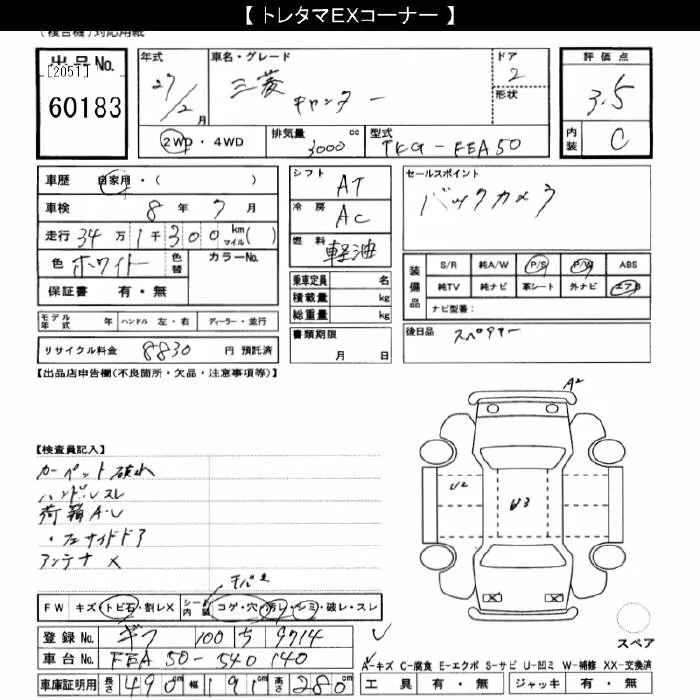 【 トレタマEXコーナー 】
(複合機)対応用紙
出品No. [2051] 60183
年式 27/2月
車名・グレード 三菱 キャンター
ドア 2
形状
評価点 3.5
内装 C
2WD・4WD 排気量 3000 cc 型式 TKG-FEA50
車歴 自家用・( )
車検 8年7月
走行 34万1千300 km マイル( )
色 ホワイト 色替 カラーNo.
保証書 有・無
モデル年式 年 ハンドル 左・右 ディーラー・並行
リサイクル料金 8830 円 預託済
シフト AT
冷房 AC
燃料 軽油
乗車定員 名
積載量 kg
総重量 kg
書類期限
月 日
セールスポイント
バックカメラ
装備品 S/R 純A/W P/S P/W ABS
純TV 純ナビ 革シート 外ナビ エアB
ナビ型番:
後日品 スペアキー
【出品店申告欄(不良箇所・欠品・注意事項等)】
【検査員記入】
カーペット破れ
ハンドルスレ
荷箱A・U
アンテナ X
A2
U2
U3
スペア
FW キズ・トビ石・割レX シート内装 コゲ・穴・汚レ・シミ・破レ・スレ
登録No. ギフ 100 ち 9714
車台No. FEA50-540140
車庫証明用 長さ 490cm 幅 191cm 高さ 280cm
A-キズ C-腐食 E-エクボ S-サビ U-凹ミ W-補修 XX-交換済
工具 有・無 ジャッキ 有・無